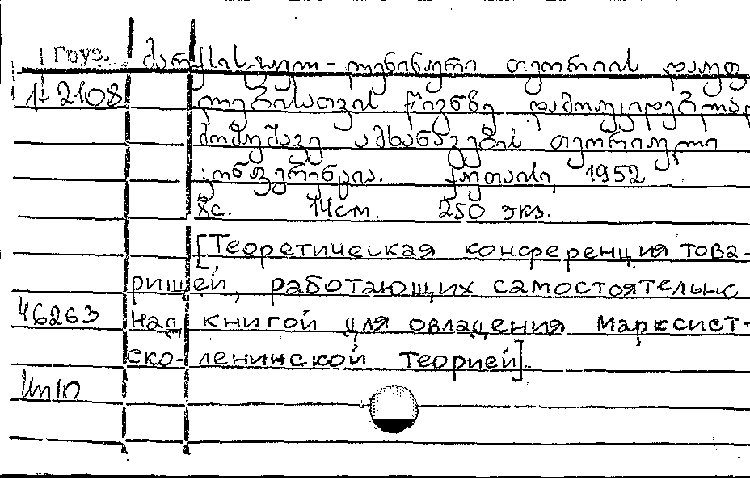 Груз. მარქსისტულ-ლენინური თეორიის დაუფ
11-2108 ლებისათვის წიგნზე დამოუკიდებლად
მომუშავე ამხანაგების თეორიული
კონფერენცია. ქუთაისი, 1952
8с. 14см 250 экз.
[Теоретическая конференция това-
рищей, работающих самостоятельно
46263 над книгой для овладения марксист-
ско-ленинской теорией].